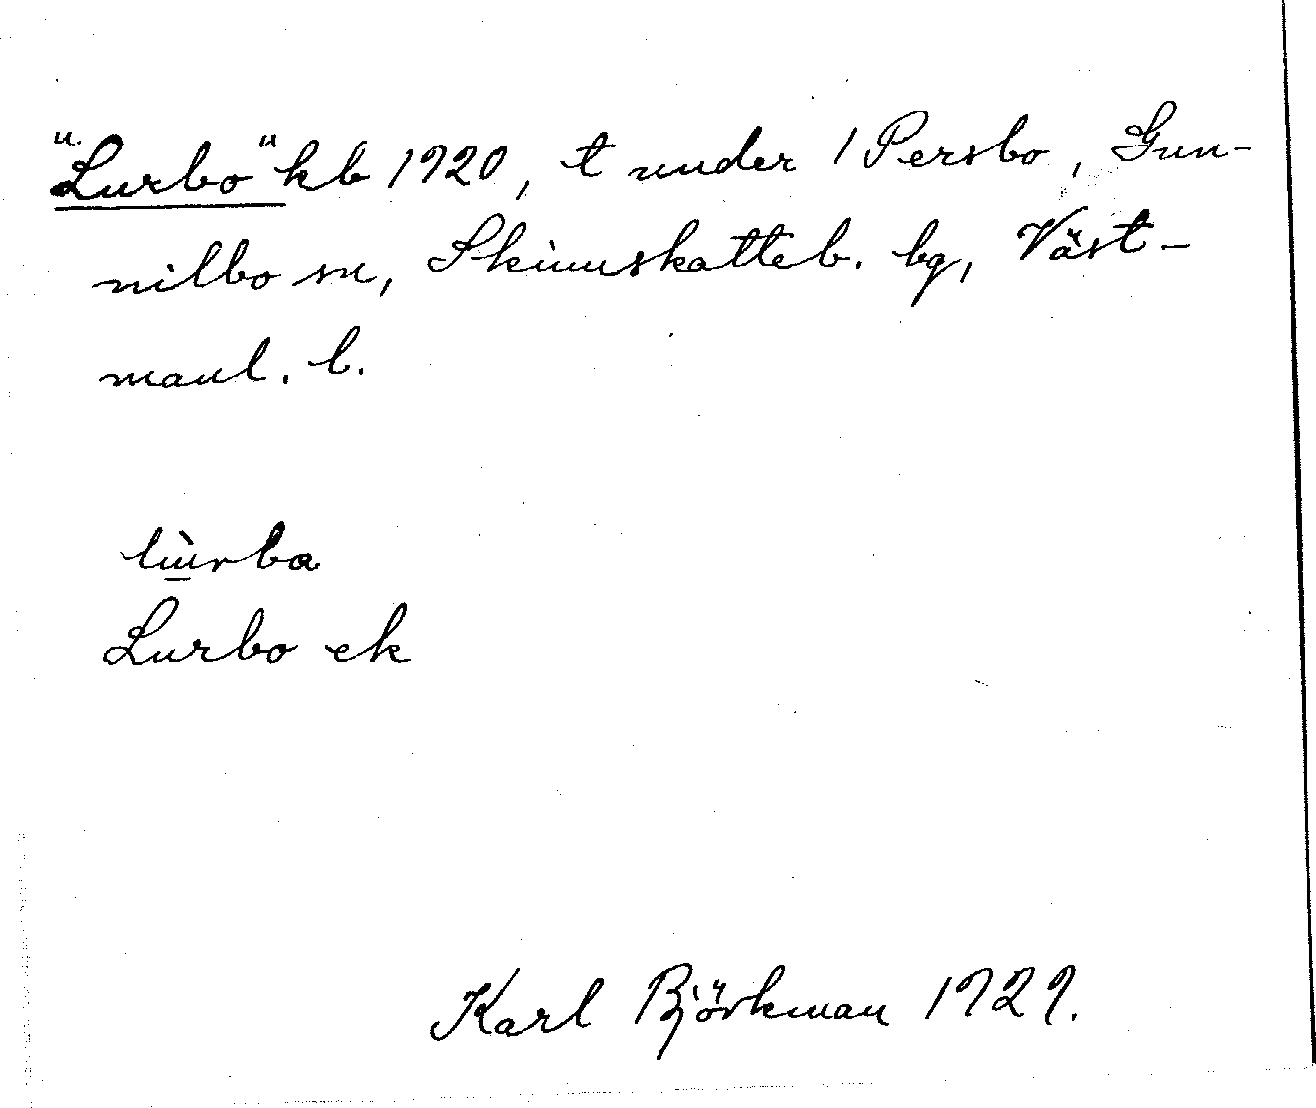 "Lurbo" kb 1920, t under 1 Persbo, Gun-
nilbo sn, Skinnskatteb. bg, Väst-
manl. l.
lùrba
Lurbo ek
Karl Björkman 1929.